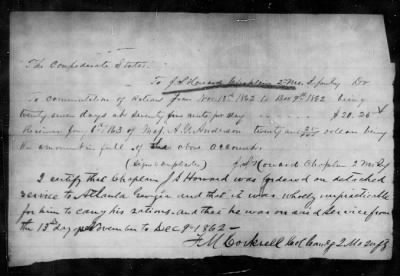 The Confederate States
To J. S. Howard Chaplain 2 Mo. Infantry Dr
To commutation of Rations from Nov 13th 1862 to Dec 9th 1862 being
twenty seven days at seventy five cents per day $20.25
Received Jany 6th 1863 of Maj. A. Anderson twenty and 25/100 dollars being
the amount in full of the above account.
(Signed duplicates) J. S. Howard Chaplain 2 Mo. Inf
I certify that Chaplain J S Howard was ordered on detached
service to Atlanta Georgia and that it was wholly impracticable
for him to carry his rations. and that he was on said service from
the 13th day of November to Dec 9th 1862 -
F M Cockrell Col Comdg 2 Mo Inf